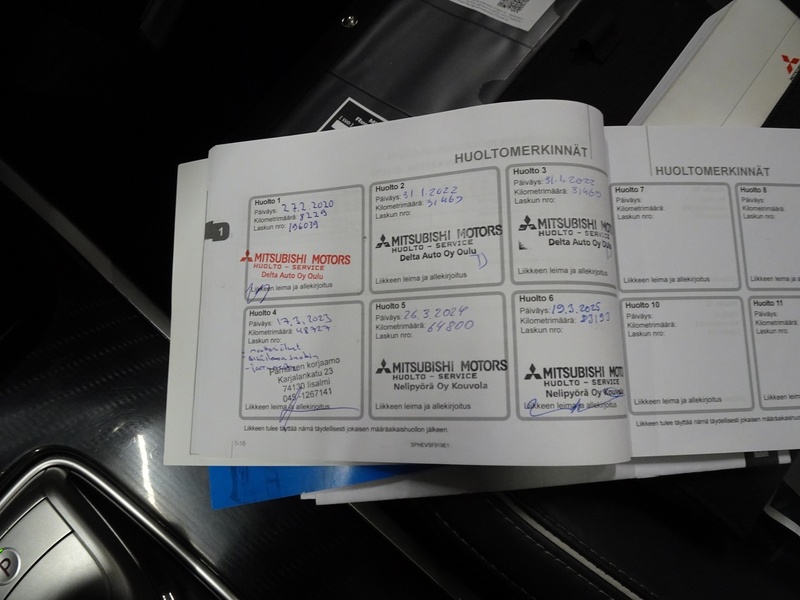 HUOLTOMERKINNÄT
Huolto 1
Päiväys: 27.2.2020
Kilometrimäärä: 8229
Laskun nro: 196039
MITSUBISHI MOTORS
HUOLTO - SERVICE
Delta Auto Oy Oulu
Liikkeen leima ja allekirjoitus
Huolto 2
Päiväys: 31.1.2022
Kilometrimäärä: 31465
Laskun nro:
MITSUBISHI MOTORS
HUOLTO - SERVICE
Delta Auto Oy Oulu
Liikkeen leima ja allekirjoitus
Huolto 3
Päiväys: 31.1.2022
Kilometrimäärä: 31465
Laskun nro:
MITSUBISHI MOT
HUOLTO - SERVICE
Delta Auto Oy Oulu
Liikkeen leima ja allekirjoitus
Huolto 4
Päiväys: 17.3.2023
Kilometrimäärä: 48727
Laskun nro:
korjaamo
Karjalankatu 23
74130 Iisalmi
045-1267141
Liikkeen leima ja allekirjoitus
Huolto 5
Päiväys: 26.3.2024
Kilometrimäärä: 64800
Laskun nro:
MITSUBISHI MOTORS
HUOLTO - SERVICE
Nelipyörä Oy Kouvola
Liikkeen leima ja allekirjoitus
Huolto 6
Päiväys: 19.3.2025
Kilometrimäärä: 83193
Laskun nro:
MITSUBISHI MOT
HUOLTO - SERVICE
Nelipyörä Oy Kouvola
Liikkeen leima ja allekirjoitus
Liikkeen tulee täyttää nämä täydellisesti jokaisen määräaikaishuollon jälkeen.
1
HUOLTOMERKINNÄT
Huolto 7
Päiväys:
Kilometrimäärä:
Laskun nro:
Liikkeen leima ja allekirjoitus
Huolto 8
Päiväys:
Kilometrimäärä:
Laskun nro:
Huolto 10
Päiväys:
Kilometrimäärä:
Laskun nro:
Liikkeen leima ja allekirjoitus
Huolto 11
Päiväys:
Laskun nro:
P